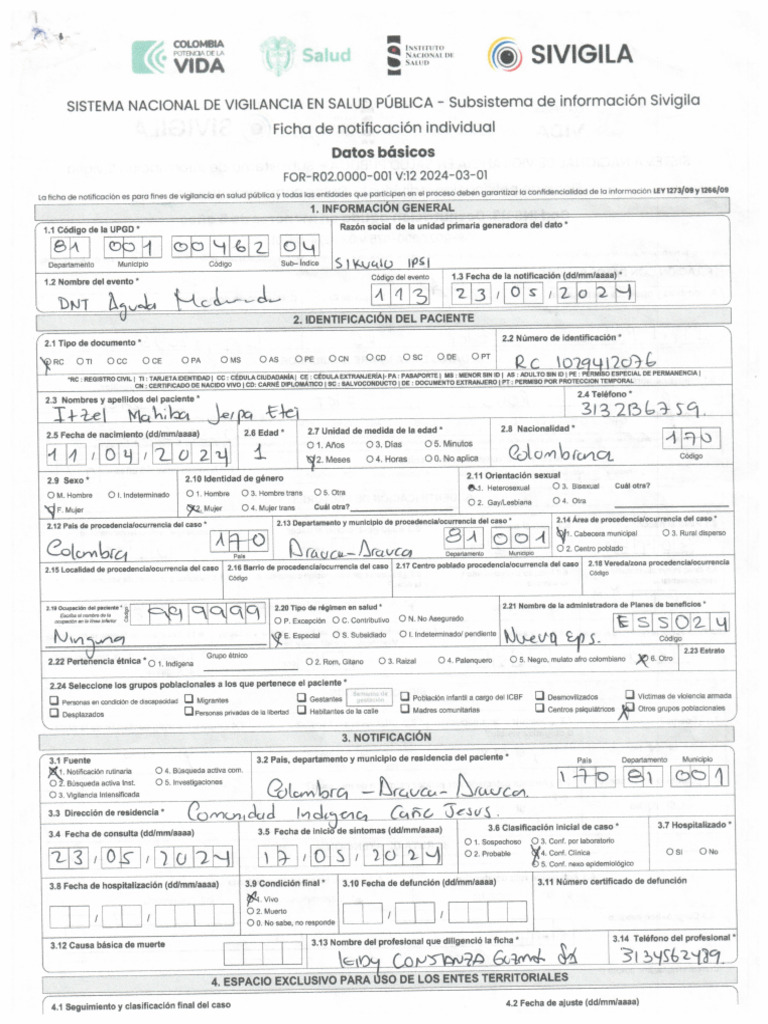 COLOMBIA
POTENCIA DE LA
VIDA
Salud
INSTITUTO
NACIONAL DE
SALUD
SIVIGILA
SISTEMA NACIONAL DE VIGILANCIA EN SALUD PÚBLICA - Subsistema de información Sivigila
Ficha de notificación individual
Datos básicos
FOR-R02.0000-001 V:12 2024-03-01
La ficha de notificación es para fines de vigilancia en salud pública y todas las entidades que participen en el proceso deben garantizar la confidencialidad de la información LEY 1273/09 y 1266/09
1. INFORMACIÓN GENERAL
1.1 Código de la UPGD * Razón social de la unidad primaria generadora del dato *
81 001 00462 04
Departamento Municipio Código Sub-Índice SIKUALU IPSI
1.2 Nombre del evento * Código del evento 1.3 Fecha de la notificación (dd/mm/aaaa) *
DNT Aguda 113 23/05/2024
2. IDENTIFICACIÓN DEL PACIENTE
2.1 Tipo de documento * 2.2 Número de identificación *
X RC TI CC CE PA MS AS PE CN CD SC DE PT RC 1029412076
*RC : REGISTRO CIVIL | TI : TARJETA IDENTIDAD | CC : CÉDULA CIUDADANÍA | CE : CÉDULA EXTRANJERÍA |- PA : PASAPORTE | MS : MENOR SIN ID | AS : ADULTO SIN ID | PE : PERMISO ESPECIAL DE PERMANENCIA | CN : CERTIFICADO DE NACIDO VIVO | CD: CARNÉ DIPLOMÁTICO | SC : SALVOCONDUCTO | DE : DOCUMENTO EXTRANJERO | PT : PERMISO POR PROTECCIÓN TEMPORAL
2.3 Nombres y apellidos del paciente * 2.4 Teléfono *
Itzel 3132136759.
2.5 Fecha de nacimiento (dd/mm/aaaa) 2.6 Edad * 2.7 Unidad de medida de la edad * 2.8 Nacionalidad *
11/04/2024 1 1. Años 3. Días 5. Minutos Colombiana 170
X 2. Meses 4. Horas 0. No aplica Código
2.9 Sexo * 2.10 Identidad de género 2.11 Orientación sexual
M. Hombre I. Indeterminado 1. Hombre 3. Hombre trans 5. Otra X 1. Heterosexual 3. Bisexual Cuál otro?
X F. Mujer X 2. Mujer 4. Mujer trans Cuál otro? 2. Gay/Lesbiana 4. Otra
2.12 País de procedencia/ocurrencia del caso * 2.13 Departamento y municipio de procedencia/ocurrencia del caso * 2.14 Área de procedencia/ocurrencia del caso *
Colombia 170 Arauca-Arauca 81 001 X 1. Cabecera municipal 3. Rural disperso
País Departamento Municipio 2. Centro poblado
2.15 Localidad de procedencia/ocurrencia del caso 2.16 Barrio de procedencia/ocurrencia del caso 2.17 Centro poblado procedencia/ocurrencia del caso 2.18 Vereda/zona procedencia/ocurrencia
Código Código
2.19 Ocupación del paciente * Código 999999 2.20 Tipo de régimen en salud * 2.21 Nombre de la administradora de Planes de beneficios *
Escriba el nombre de la ocupación en la línea inferior P. Excepción C. Contributivo N. No Asegurado ESS024
Ninguna X E. Especial S. Subsidiado I. Indeterminado/ pendiente Nueva Eps. Código
2.22 Pertenencia étnica * 1. Indígena Grupo étnico 2. Rom, Gitano 3. Raizal 4. Palenquero 5. Negro, mulato afro colombiano X 6. Otro 2.23 Estrato
2.24 Seleccione los grupos poblacionales a los que pertenece el paciente *
Personas en condición de discapacidad Migrantes Gestantes Semanas de gestación Población infantil a cargo del ICBF Desmovilizados Víctimas de violencia armada
Desplazados Personas privadas de la libertad Habitantes de la calle Madres comunitarias Centros psiquiátricos X Otros grupos poblacionales
3. NOTIFICACIÓN
3.1 Fuente 3.2 País, departamento y municipio de residencia del paciente * País Departamento Municipio
X 1. Notificación rutinaria 4. Búsqueda activa com. Colombia - Arauca - Arauca 170 81 001
2. Búsqueda activa Inst. 5. Investigaciones
3. Vigilancia Intensificada
3.3 Dirección de residencia * Comunidad Indigena Caño Jesus.
3.4 Fecha de consulta (dd/mm/aaaa) 3.5 Fecha de inicio de síntomas (dd/mm/aaaa) 3.6 Clasificación inicial de caso * 3.7 Hospitalizado *
23/05/2024 17/05/2024 1. Sospechoso 3. Conf. por laboratorio Sí No
2. Probable X 4. Conf. Clínica
5. Conf. nexo epidemiológico
3.8 Fecha de hospitalización (dd/mm/aaaa) 3.9 Condición final * 3.10 Fecha de defunción (dd/mm/aaaa) 3.11 Número certificado de defunción
X 1. Vivo
2. Muerto
0. No sabe, no responde
3.12 Causa básica de muerte 3.13 Nombre del profesional que diligenció la ficha * 3.14 Teléfono del profesional *
LEIDY CONSTANZA GUZMAN 3134562489.
4. ESPACIO EXCLUSIVO PARA USO DE LOS ENTES TERRITORIALES
4.1 Seguimiento y clasificación final del caso 4.2 Fecha de ajuste (dd/mm/aaaa)